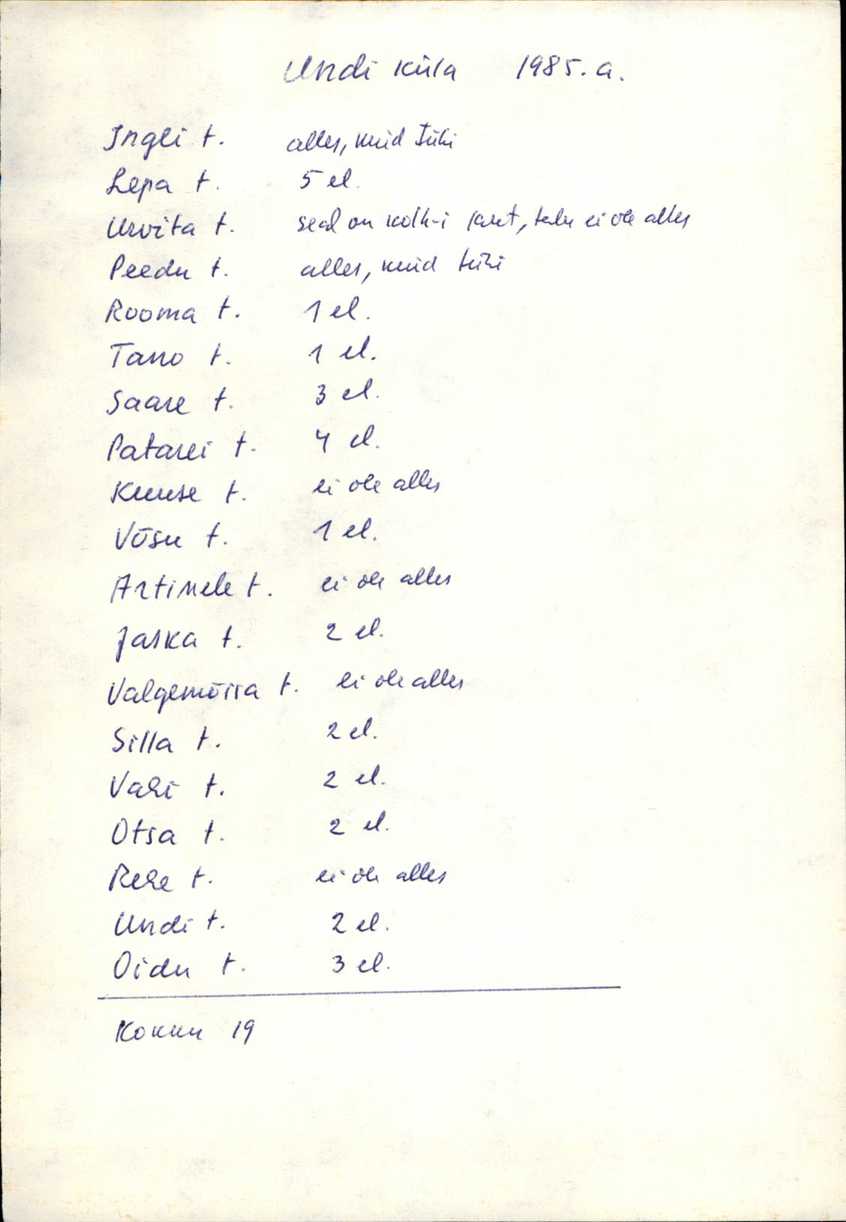 Undi küla 1985.a.
Ingli t. alles, kuid tühi
Lepa t. 5 el.
Urvita t. seal on kolh-i laut, talu ei ole alles
Peedu t. alles, kuid tühi
Rooma t. 1 el.
Tano t. 1 el.
Saare t. 3 el.
Patarei t. 4 el.
Kuuse t. ei ole alles
Võsu t. 1 el.
t. ei ole alles
Jaska t. 2 el.
Valgemõisa t. ei ole alles
Silla t. 2 el.
Vahi t. 2 el.
Otsa t. 2 el.
Rehe t. ei ole alles
Undi t. 2 el.
Oidu t. 3 el.
Kokku 19